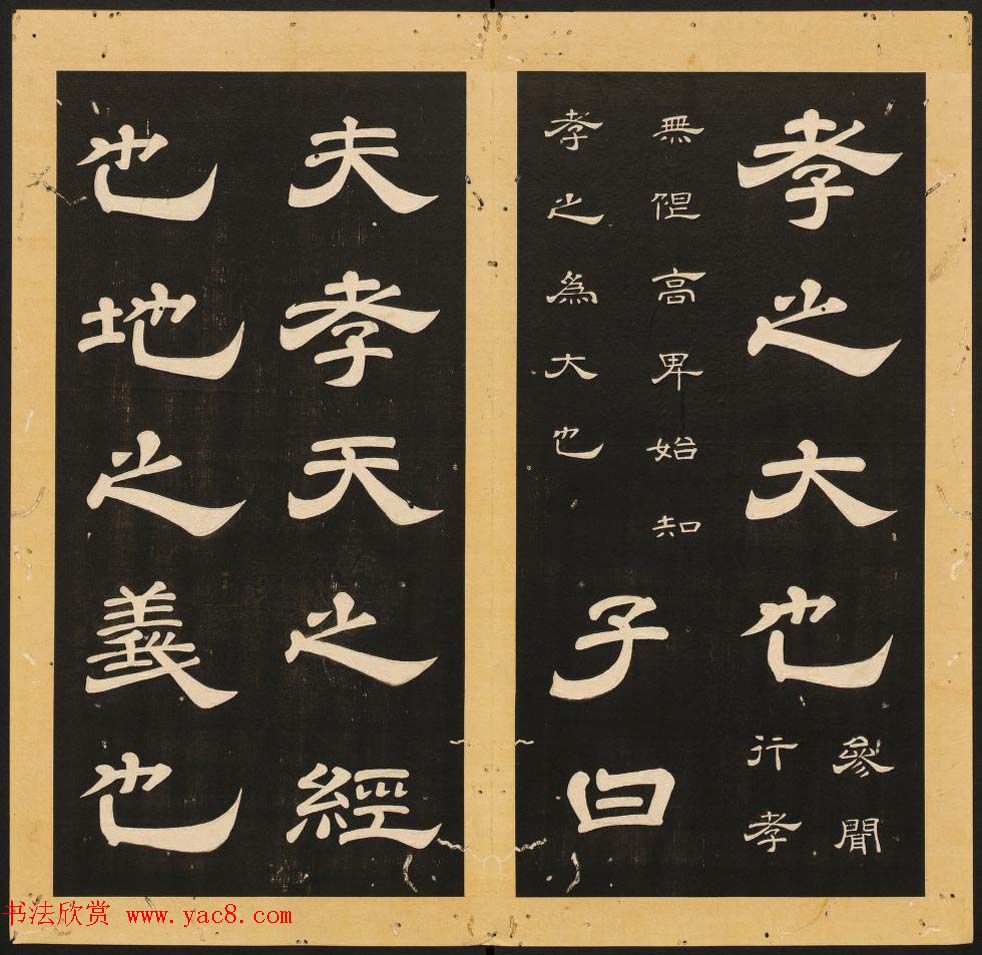 孝之大也
參聞
行孝
無限高卑始知
孝之為大也
子曰
夫孝天之經
也地之義也
书法欣赏 www.yac8.com